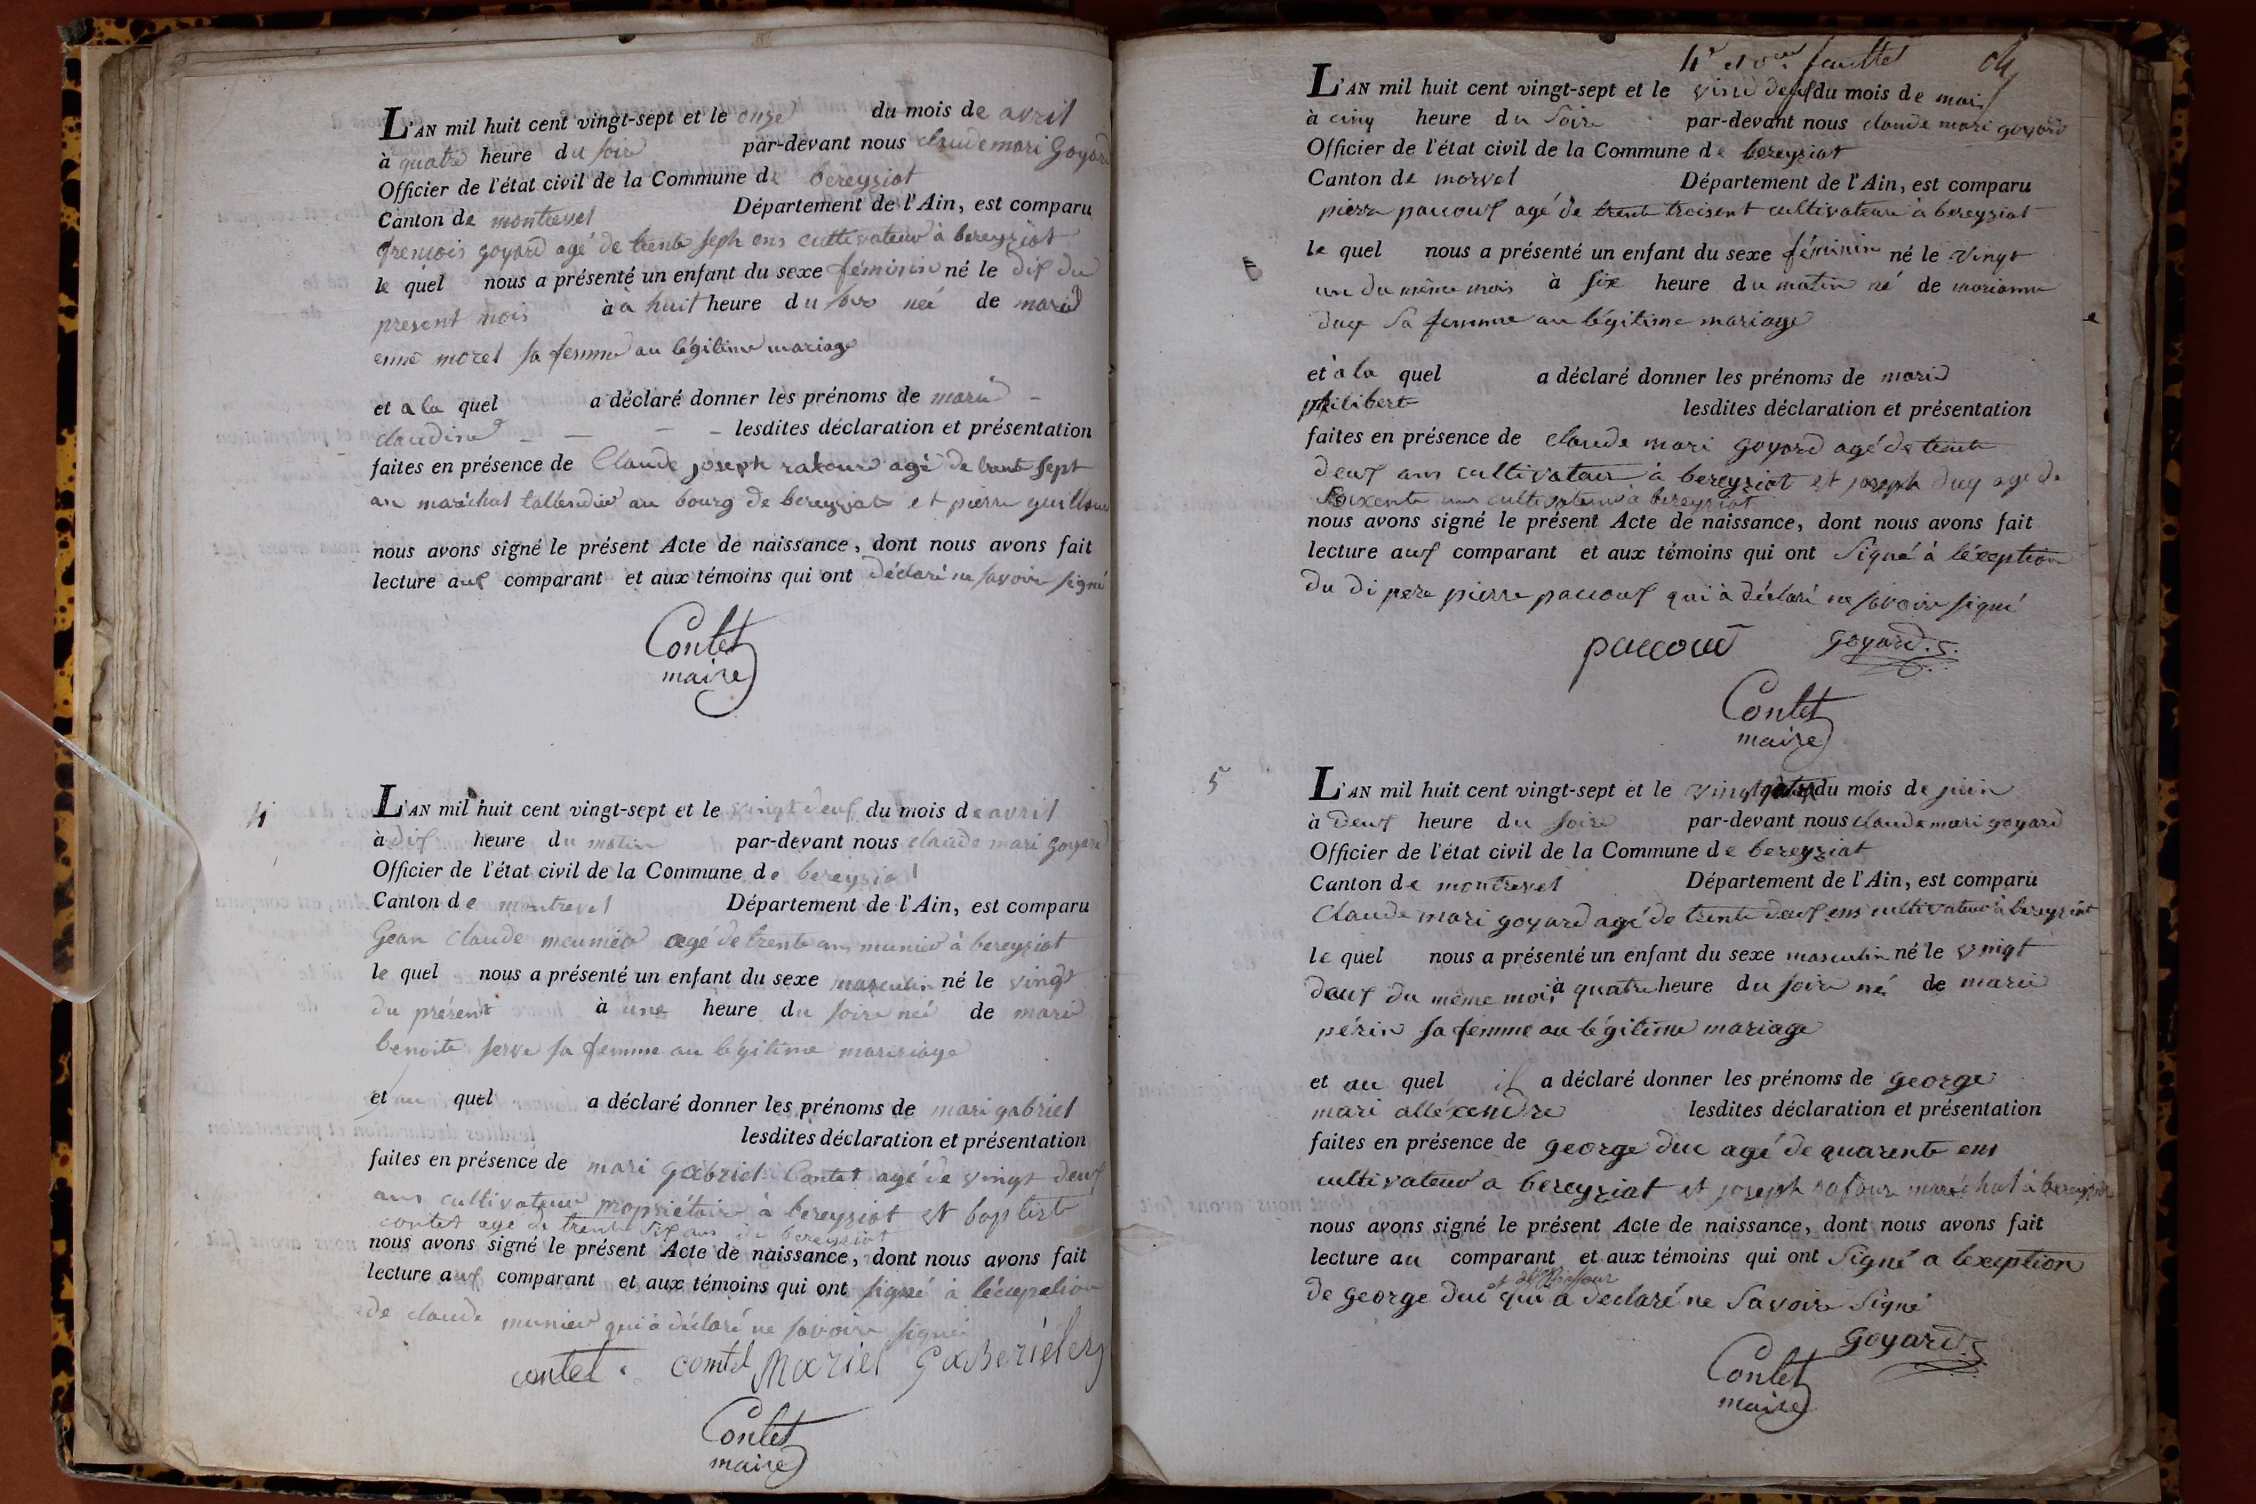 L'AN mil huit cent vingt-sept et le onze du mois de avril
à quatre heure du soire par-devant nous claude mari Goyard
Officier de l'état civil de la Commune de bereyziat
Canton de montrevel Département de l'Ain, est comparu
frencois goyard agé de trente seph ens cultivateur à bereyziat
le quel nous a présenté un enfant du sexe féminin né le dix du
présent mois à à huit heure du neé de marie
enne morel sa femme au légitime mariage
et a la quel a déclaré donner les prénoms de marie
claudine lesdites déclaration et présentation
faites en présence de Claude joseph agé de trente sept
an maréchal au bourg de bereyziat et pierre
nous avons signé le présent Acte de naissance, dont nous avons fait
lecture aux comparant et aux témoins qui ont déclaré ne savoir signé
Contet
maire
4
L'AN mil huit cent vingt-sept et le vingt deux du mois de avril
à dix heure du matin par-devant nous claude mari Goyard
Officier de l'état civil de la Commune de bereyziat
Canton de montrevel Département de l'Ain, est comparu
Gean claude meunier agé de trente ans munier à bereyziat
le quel nous a présenté un enfant du sexe masculin né le vingt
du présent à une heure du soire neé de marie
benoite serve sa femme au légitime marriage
et au quel a déclaré donner les prénoms de mari gabriel
lesdites déclaration et présentation
faites en présence de mari gabriel Contet agé de vingt deux
ans cultivateur propriétaire à bereyziat et baptiste
contet agé de trente dix ans de bereyziat
nous avons signé le présent Acte de naissance, dont nous avons fait
lecture aux comparant et aux témoins qui ont signé à
de claude munier qui à déclaré ne savoire signé
contet. comtet Mariel GaBeriel
Contet
maire
4e et feuillet
L'AN mil huit cent vingt-sept et le vint deux du mois de mai
à cinq heure du Soire par-devant nous claude mari goyard
Officier de l'état civil de la Commune de bereyziat
Canton de Département de l'Ain, est comparu
pierre paccoux agé de trente cultivateur à bereyziat
le quel nous a présenté un enfant du sexe féminin né le vingt
un du même mois à six heure du matin né de marianne
duc Sa femme au légitime mariage
et à la quel a déclaré donner les prénoms de marie
philiberte lesdites déclaration et présentation
faites en présence de claude mari goyard agé de trente
deux ans cultivateur à bereyziat et joseph duc agé de
ans cultivateur à bereyziat
nous avons signé le présent Acte de naissance, dont nous avons fait
lecture aux comparant et aux témoins qui ont Signé à léxeption
du di pere pierre paccoux qui à déclaré ne savoire signé
paccoud goyard
Contet
maire
5
L'AN mil huit cent vingt-sept et le vingt du mois de juin
à deux heure du soire par-devant nous claude mari goyard
Officier de l'état civil de la Commune de bereyziat
Canton de montrevel Département de l'Ain, est comparu
Claude mari goyard agé de trente deux ens cultivateur à bereyziat
le quel nous a présenté un enfant du sexe masculin né le vingt
deux du même mois à quatre heure du soire né de marie
périn sa femme au légitime mariage
et au quel il a déclaré donner les prénoms de george
mari alléxendre lesdites déclaration et présentation
faites en présence de george duc agé de quarente ens
cultivateur a bereyziat et joseph maréchal à bereyziat
nous avons signé le présent Acte de naissance, dont nous avons fait
lecture au comparant et aux témoins qui ont Signé a lexeption
de george duc qui a declaré ne Savoire Signé
Goyard
Contet
maire